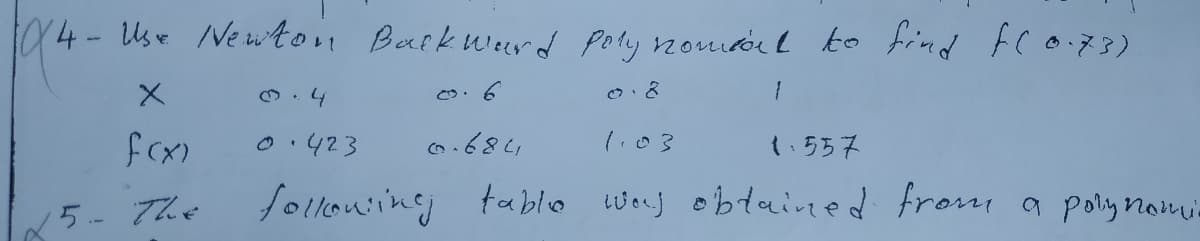 Q4- Use Newton Backward Polynomial to find f(0.73)
X 0.4 0.6 0.8 1
f(x) 0.423 0.684 1.03 1.557
5- The following table was obtained from a polynomi